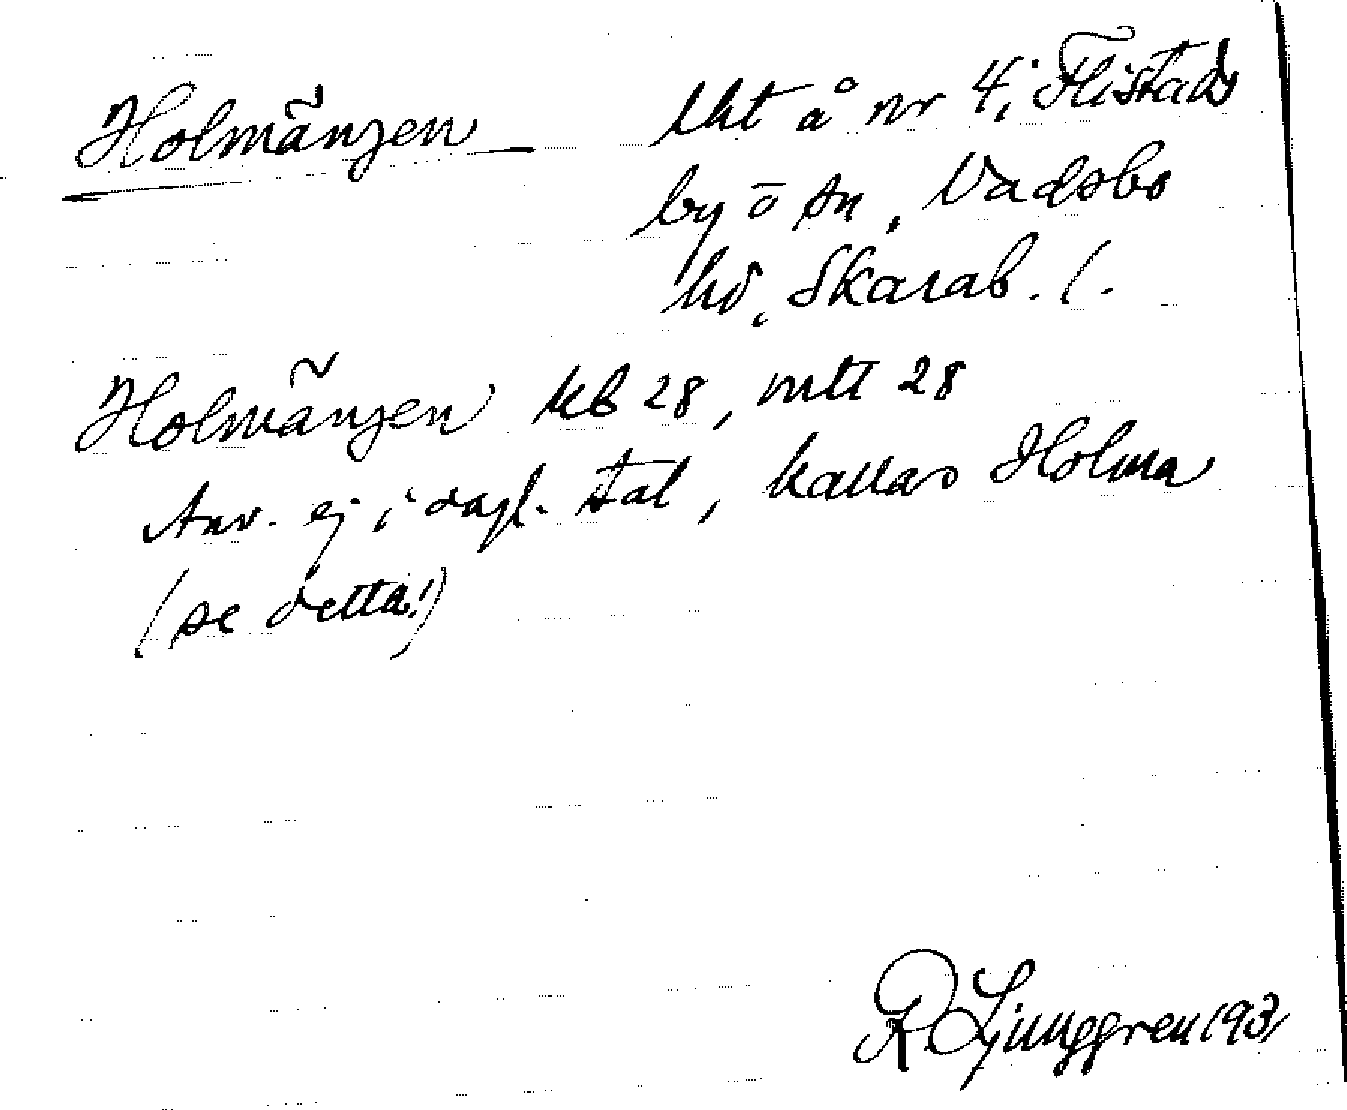 Holmängen
Lht å nr 4, Flistads
by o sn, Vadsbo
hd, Skarab. l.
Holmängen kb 28, mtl 28
Anv. ej i dagl. tal, kallas Holma
(se detta!)
R. Ljunggren 1931